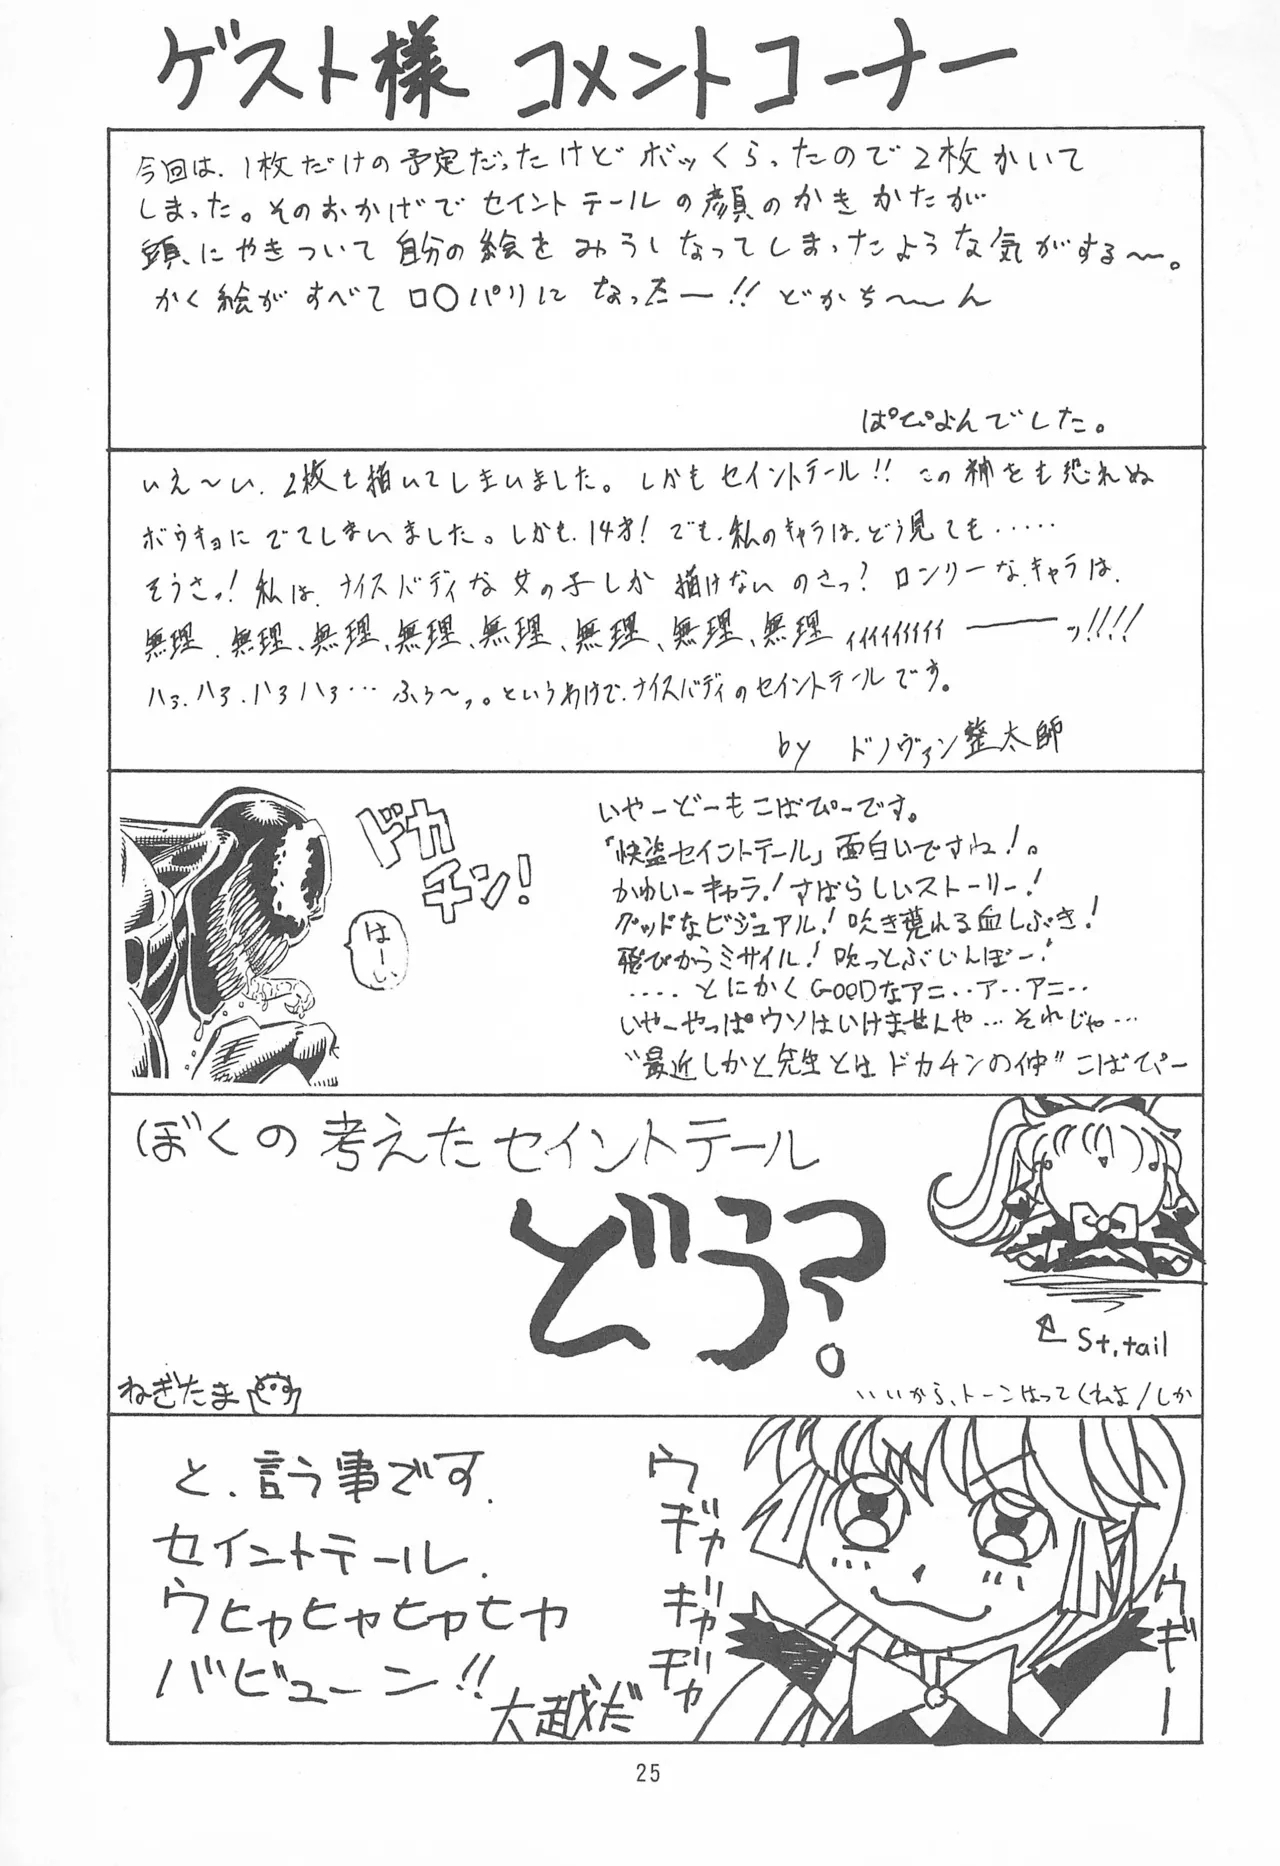 ゲスト様 コメントコーナー
今回は、1枚だけの予定だったけどボッくらったので2枚かいて
しまった。そのおかげでセイントテールの顔のかきかたが
頭にやきついて自分の絵をみうしなってしまったような気がする〜。
かく絵がすべてロ〇パリになったー!! どかち〜ん
ぱぴよんでした。
いえ〜い、2枚も描いてしまいました。しかもセイントテール!! この神をも恐れぬ
ボウキョにでてしまいました。しかも、14才! でも、私のキャラは、どう見ても……
そうさっ! 私は、ナイスバディな女の子しか描けないのさっ? ロンリーな、キャラは、
無理、無理、無理、無理、無理、無理、無理、無理ィィィィィィィィ ――ッ!!!!
ハァ、ハァ、ハァハァ… ふぅ〜っ。というわけで、ナイスバディのセイントテールです。
by ドノヴァン整太師
ドカチン!
はーい
いやーどーもこばぴーです。
「快盗セイントテール」面白いですね!。
かわいーキャラ! すばらしいストーリー!
グッドなビジュアル! 吹き荒れる血しぶき!
飛びかうミサイル! 吹っとぶじんぼー!
....とにかくGOODなアニ‥ア‥アニ‥
いやーやっぱウソはいけませんや…それじゃ…
"最近しかと先生とはドカチンの仲" こばぴー
ぼくの考えたセイントテール
どう?
St.tail
ねぎたま
いいから、トーンはってくれよ/しか
と、言う事です。
セイントテール、
ウヒャヒャヒャヒャ
バビューン!!
大越だ
ウギャギャギャ
ウギー
25